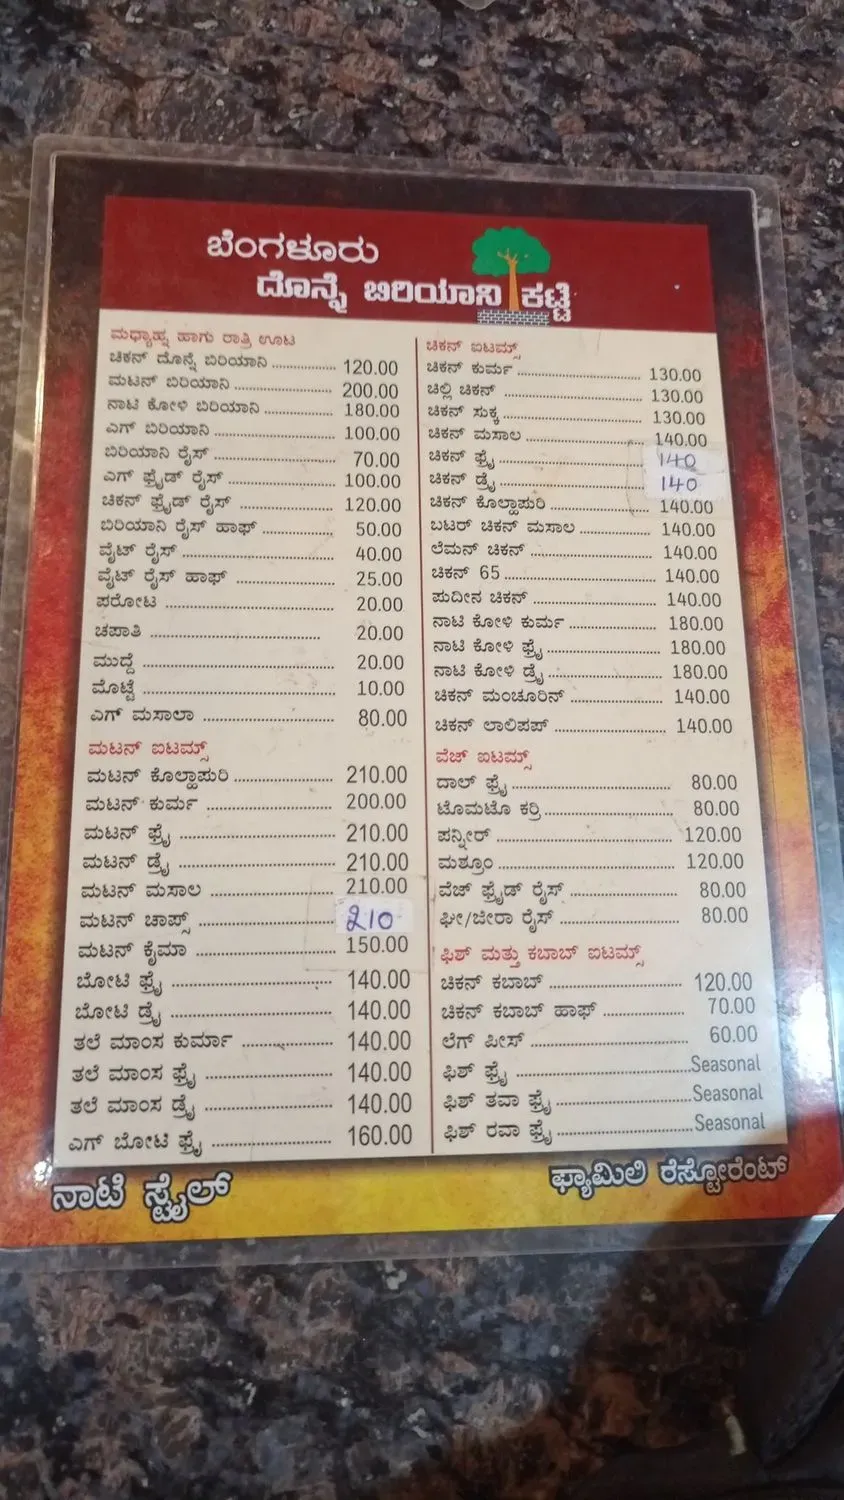 ಬೆಂಗಳೂರು
ದೊನ್ನೆ ಬಿರಿಯಾನಿ ಕಟ್ಟೆ
ಮಧ್ಯಾಹ್ನ ಹಾಗು ರಾತ್ರಿ ಊಟ
ಚಿಕನ್ ದೊನ್ನೆ ಬಿರಿಯಾನಿ 120.00
ಮಟನ್ ಬಿರಿಯಾನಿ 200.00
ನಾಟಿ ಕೋಳಿ ಬಿರಿಯಾನಿ 180.00
ಎಗ್ ಬಿರಿಯಾನಿ 100.00
ಬಿರಿಯಾನಿ ರೈಸ್ 70.00
ಎಗ್ ಫ್ರೈಡ್ ರೈಸ್ 100.00
ಚಿಕನ್ ಫ್ರೈಡ್ ರೈಸ್ 120.00
ಬಿರಿಯಾನಿ ರೈಸ್ ಹಾಫ್ 50.00
ವೈಟ್ ರೈಸ್ 40.00
ವೈಟ್ ರೈಸ್ ಹಾಫ್ 25.00
ಪರೋಟ 20.00
ಚಪಾತಿ 20.00
ಮುದ್ದೆ 20.00
ಮೊಟ್ಟೆ 10.00
ಎಗ್ ಮಸಾಲಾ 80.00
ಮಟನ್ ಐಟಮ್ಸ್
ಮಟನ್ ಕೊಲ್ಹಾಪುರಿ 210.00
ಮಟನ್ ಕುರ್ಮ 200.00
ಮಟನ್ ಫ್ರೈ 210.00
ಮಟನ್ ಡ್ರೈ 210.00
ಮಟನ್ ಮಸಾಲ 210.00
ಮಟನ್ ಚಾಪ್ಸ್ 210
ಮಟನ್ ಕೈಮಾ 150.00
ಬೋಟಿ ಫ್ರೈ 140.00
ಬೋಟಿ ಡ್ರೈ 140.00
ತಲೆ ಮಾಂಸ ಕುರ್ಮಾ 140.00
ತಲೆ ಮಾಂಸ ಫ್ರೈ 140.00
ತಲೆ ಮಾಂಸ ಡ್ರೈ 140.00
ಎಗ್ ಬೋಟಿ ಫ್ರೈ 160.00
ಚಿಕನ್ ಐಟಮ್ಸ್
ಚಿಕನ್ ಕುರ್ಮ 130.00
ಚಿಲ್ಲಿ ಚಿಕನ್ 130.00
ಚಿಕನ್ ಸುಕ್ಕ 130.00
ಚಿಕನ್ ಮಸಾಲ 140.00
ಚಿಕನ್ ಫ್ರೈ 140
ಚಿಕನ್ ಡ್ರೈ 140
ಚಿಕನ್ ಕೊಲ್ಹಾಪುರಿ 140.00
ಬಟರ್ ಚಿಕನ್ ಮಸಾಲ 140.00
ಲೆಮನ್ ಚಿಕನ್ 140.00
ಚಿಕನ್ 65 140.00
ಪುದೀನ ಚಿಕನ್ 140.00
ನಾಟಿ ಕೋಳಿ ಕುರ್ಮ 180.00
ನಾಟಿ ಕೋಳಿ ಫ್ರೈ 180.00
ನಾಟಿ ಕೋಳಿ ಡ್ರೈ 180.00
ಚಿಕನ್ ಮಂಚೂರಿನ್ 140.00
ಚಿಕನ್ ಲಾಲಿಪಪ್ 140.00
ವೆಜ್ ಐಟಮ್ಸ್
ದಾಲ್ ಫ್ರೈ 80.00
ಟೊಮಟೊ ಕರ್ರಿ 80.00
ಪನ್ನೀರ್ 120.00
ಮಶ್ರೂಂ 120.00
ವೆಜ್ ಫ್ರೈಡ್ ರೈಸ್ 80.00
ಘೀ/ಜೀರಾ ರೈಸ್ 80.00
ಫಿಶ್ ಮತ್ತು ಕಬಾಬ್ ಐಟಮ್ಸ್
ಚಿಕನ್ ಕಬಾಬ್ 120.00
ಚಿಕನ್ ಕಬಾಬ್ ಹಾಫ್ 70.00
ಲೆಗ್ ಪೀಸ್ 60.00
ಫಿಶ್ ಫ್ರೈ Seasonal
ಫಿಶ್ ತವಾ ಫ್ರೈ Seasonal
ಫಿಶ್ ರವಾ ಫ್ರೈ Seasonal
ನಾಟಿ ಸ್ಟೈಲ್
ಫ್ಯಾಮಿಲಿ ರೆಸ್ಟೋರೆಂಟ್